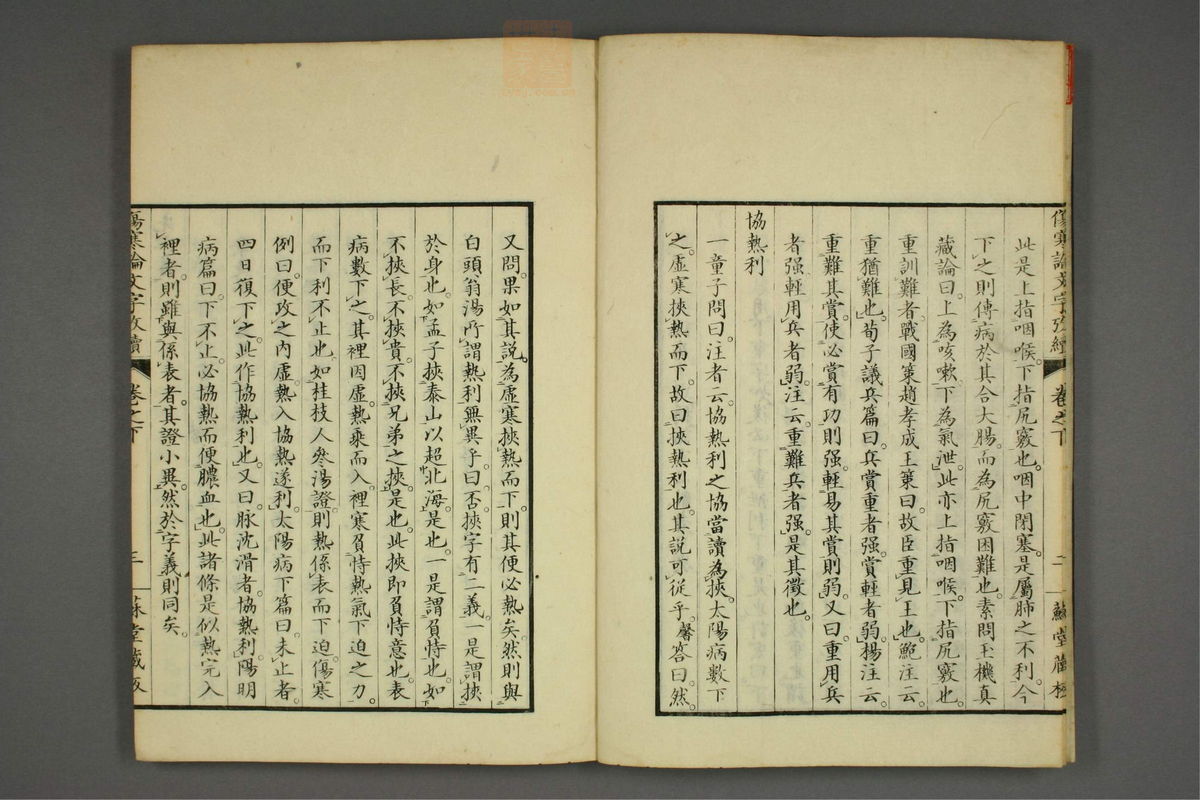 傷寒論文字攷續 卷之下 二 蘇堂藏梓
此是上指咽喉下指尻竅也咽中閉塞是屬肺之不利今
下之則傳病於其合大腸而為尻竅困難也素問玉機真
藏論曰上為咳嗽下為氣泄此亦上指咽喉下指尻竅也
重訓難者戰國策趙孝成王策曰故臣重見王也鮑注云
重猶難也荀子議兵篇曰兵賞重者强賞輕者弱楊注云
重難其賞使必賞有功則强輕易其賞則弱又曰重用兵
者强輕用兵者弱注云重難兵者强是其徵也
協熱利
一童子問曰注者云協熱利之協當讀為挾太陽病數下
之虛寒挾熱而下故曰挾熱利也其說可從乎馨答曰然
又問果如其說為虛寒挾熱而下則其便必熱矣然則與
白頭翁湯所謂熱利無異乎曰否挾字有二義一是謂挾
於身也如孟子挾泰山以超北海是也一是謂負恃也如
不挾長不挾貴不挾兄弟之挾是也此挾即負恃意也表
病數下之其裡因虛熱乘而入裡寒負恃熱氣下迫之力
而下利不止也如桂枝人參湯證則熱係表而下迫傷寒
例曰便攻之內虛熱入協熱遂利太陽病下篇曰未止者
四日復下之此作協熱利也又曰脉沈滑者協熱利陽明
病篇曰下不止必協熱而便膿血也此諸條是似熱完入
裡者則雖與係表者其證小異然於字義則同矣
傷寒論文字攷續 卷之下 三 蘇堂藏版